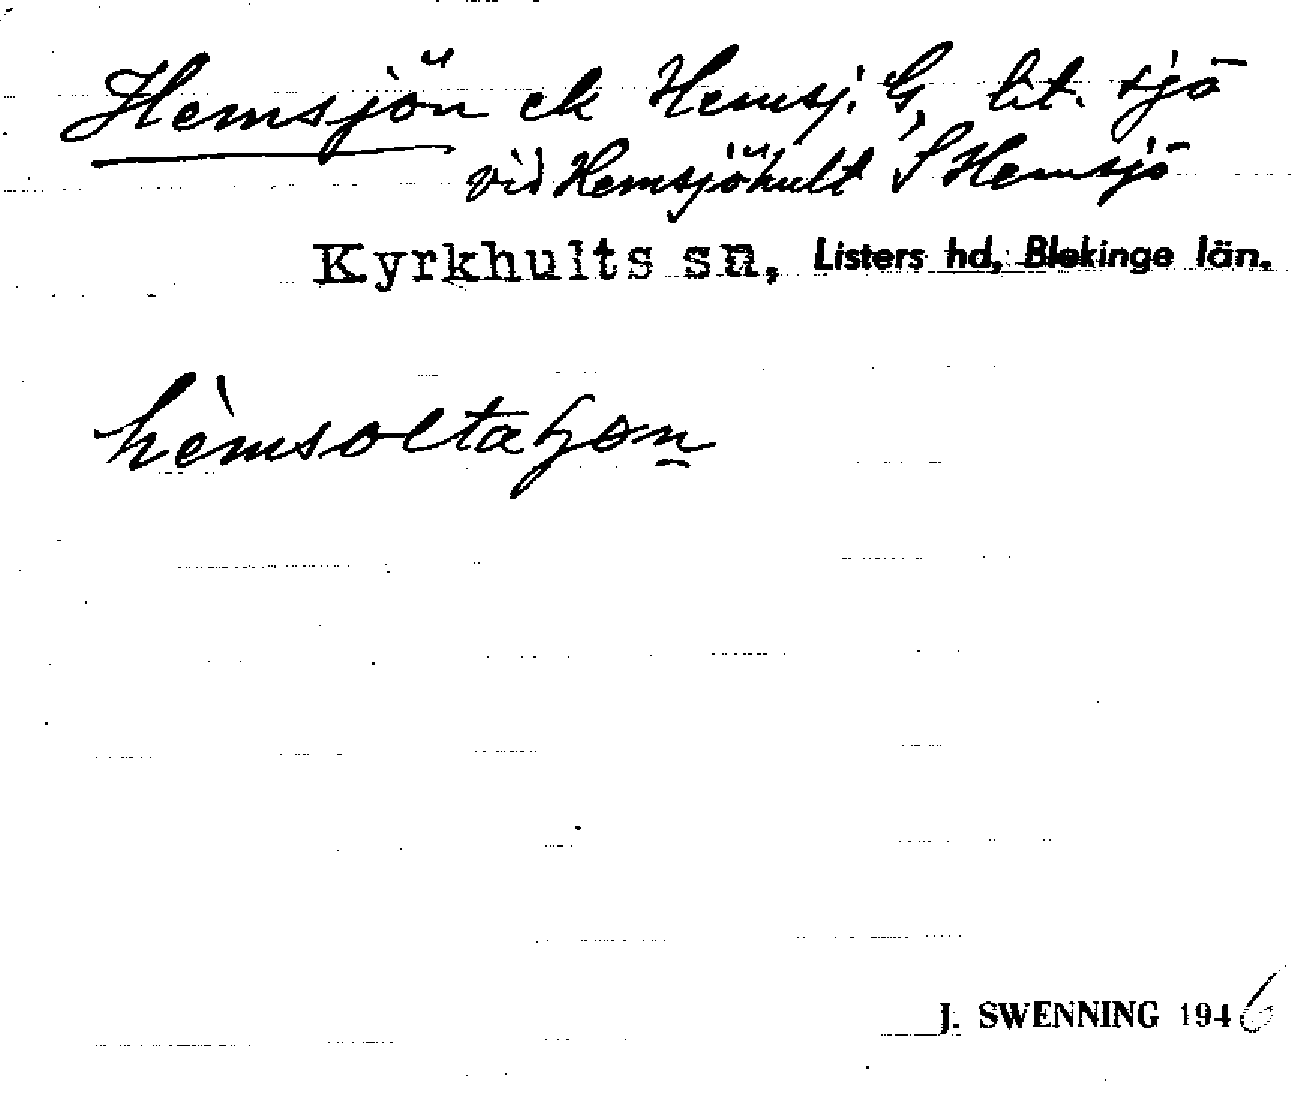 Hemsjön ek Hemsj. G, lit. sjö
vid Hemsjöhult S Hemsjö
Kyrkhults sn, Listers hd, Blekinge län.
J. SWENNING 1946